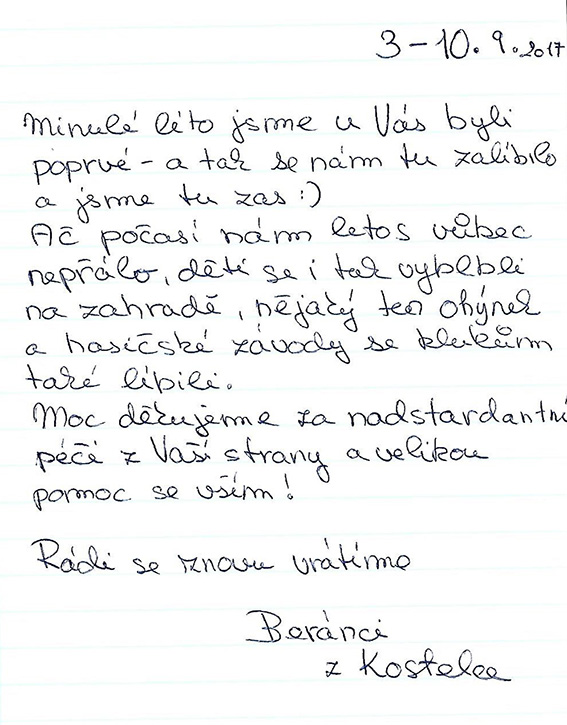 3-10. 9. 2017
Minulé léto jsme u Vás byli
poprvé - a tak se nám tu zalíbilo
a jsme tu zas :)
Ač počasí nám letos vůbec
nepřálo, děti se i tak vyblbli
na zahradě, nějaký ten ohýnek
a hasičské závody se klukům
také líbili.
Moc děkujeme za nadstardantní
péči z Vaší strany a velikou
pomoc se vším!
Rádi se znovu vrátíme
Beránci
z Kostelce